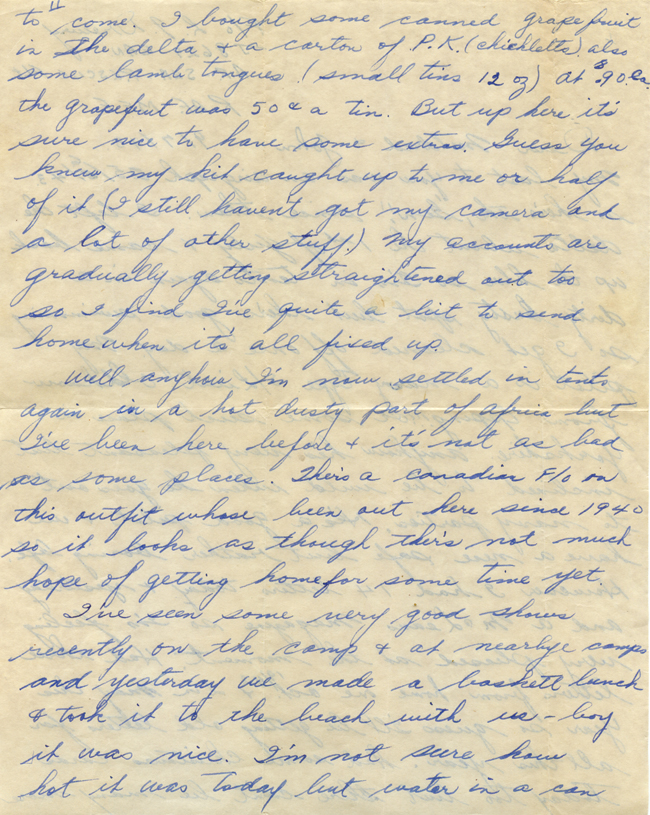 to come. I bought some canned grapefruit
in the delta & a carton of P.K. (chickletts) also
some lamb tongues. (small tins 12 oz) at $.90 ea.
the grapefruit was 50¢ a tin. But up here it's
sure nice to have some extras. Guess you
knew my kit caught up to me or half
of it (I still haven't got my camera and
a lot of other stuff.) My accounts are
gradually getting straightened out too
so I find I've quite a bit to send
home when it's all fixed up.
Well anyhow I'm now settled in tents
again in a hot dusty part of africa but
I've been here before & it's not as bad
as some places. There's a canadian F/O on
this outfit whose been out here since 1940
so it looks as though ther's not much
hope of getting home for some time yet.
I've seen some very good shows
recently on the camp & at nearbye camps
and yesterday we made a baskett lunch
& took it to the beach with us - boy
it was nice. I'm not sure how
hot it was today but water in a can